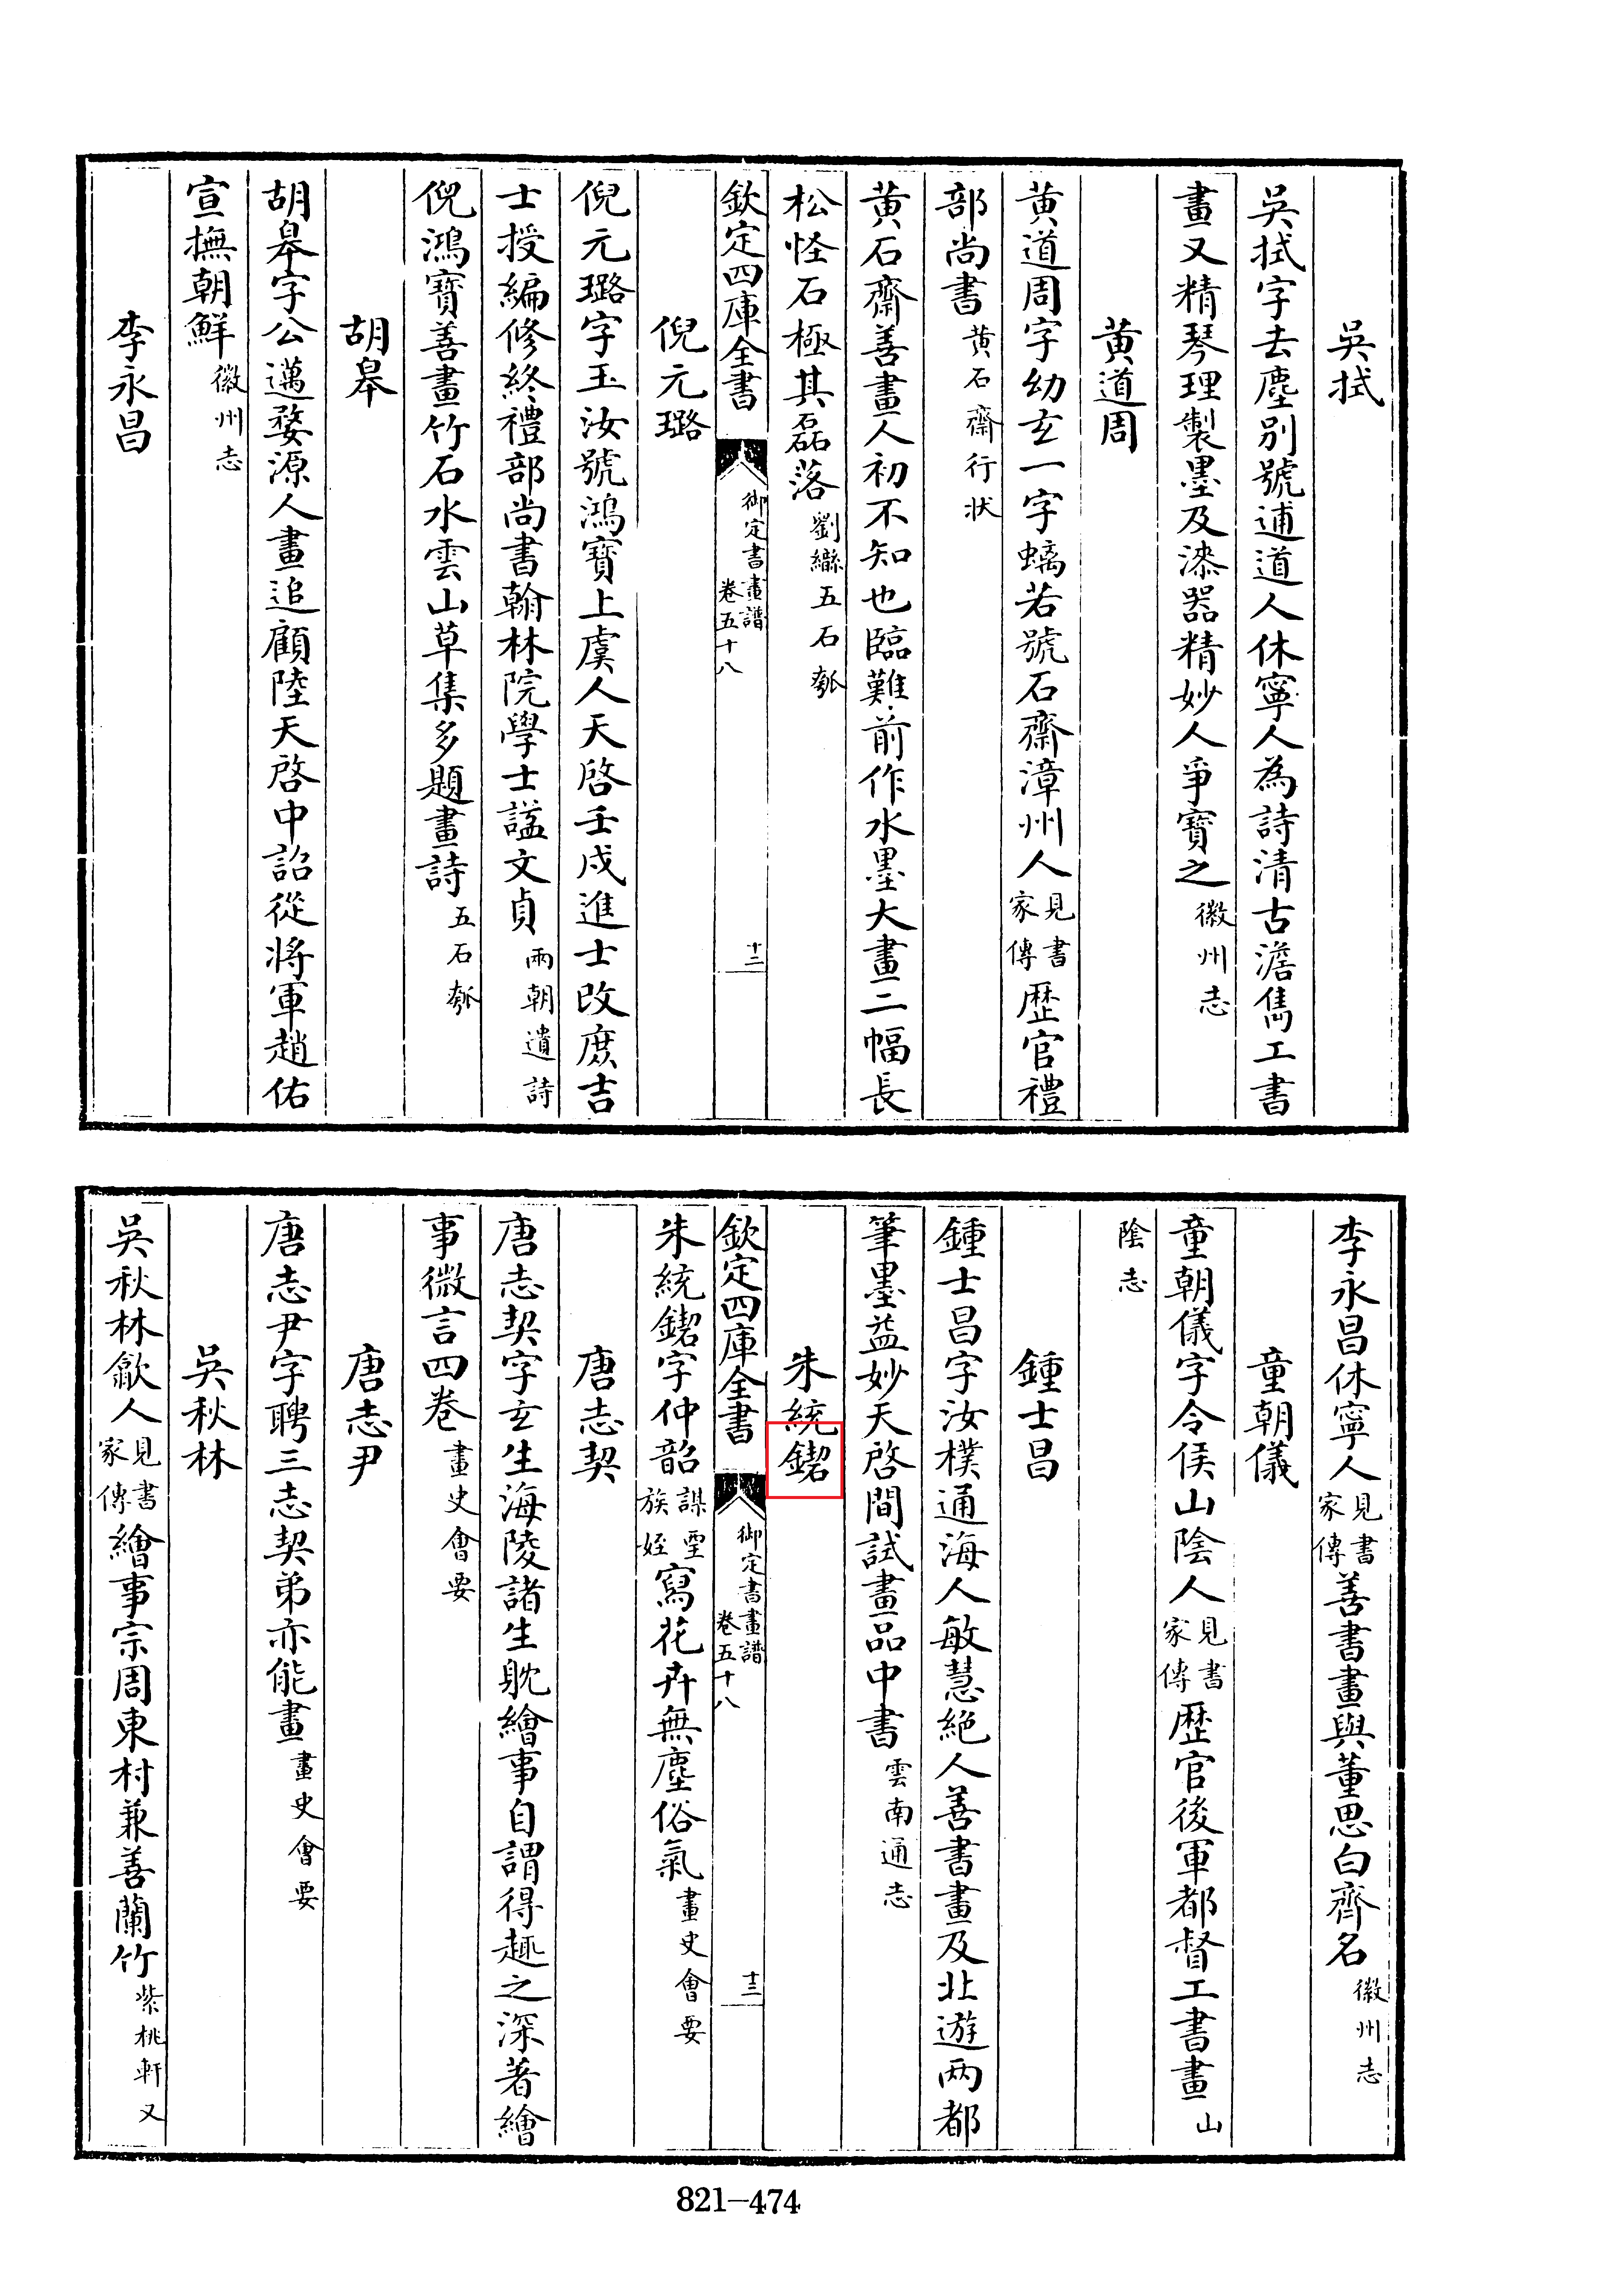 吳拭
吳拭字去塵別號逋道人休寧人為詩清古澹雋工書
畫又精琴理製墨及漆器精妙人爭寶之徽州志
黃道周
黃道周字幼玄一字螭若號石齋漳州人見書家傳歴官禮
部尚書黃石齋行狀
黃石齋善畫人初不知也臨難前作水墨大畫二幅長
松怪石極其磊落劉五石瓠
欽定四庫全書 御定書畫譜卷五十八 十二
倪元璐
倪元璐字玉汝號鴻寶上虞人天啓壬戍進士改庶吉
士授編修終禮部尚書翰林院學士諡文貞兩朝遺詩
倪鴻寶善畫竹石水雲山草集多題畫詩五石瓠
胡皋
胡皋字公邁婺源人畫追顧陸天啓中詔從將軍趙佑
宣撫朝鮮徽州志
李永昌
李永昌休寧人見書家傳善書畫與董思白齊名徽州志
童朝儀
童朝儀字令侯山陰人見書家傳歴官後軍都督工書畫山
陰志
鍾士昌
鍾士昌字汝樸通海人敏慧絕人善書畫及北遊兩都
筆墨益妙天啓間試畫品中書雲南通志
朱統
欽定四庫全書 御定書畫譜卷五十八 十三
朱統字仲韶謀垔族姪寫花卉無塵俗氣畫史會要
唐志契
唐志契字玄生海陵諸生躭繪事自謂得趣之深著繪
事微言四卷畫史會要
唐志尹
唐志尹字聘三志契弟亦能畫畫史會要
吳秋林
吳秋林歙人見書家傳繪事宗周東村兼善蘭竹紫桃軒又
821—474